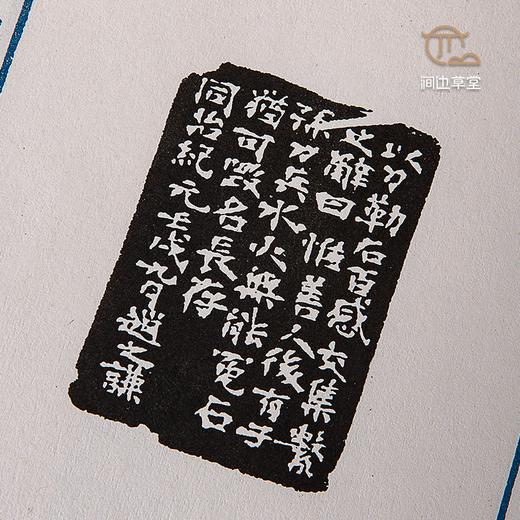 涧边草堂
以刀勒石百感交集繫
之辭曰惟善人後有子
孫刀兵水火無能冤石
猶可毀名長存
同治紀元壬戌九月趙之謙